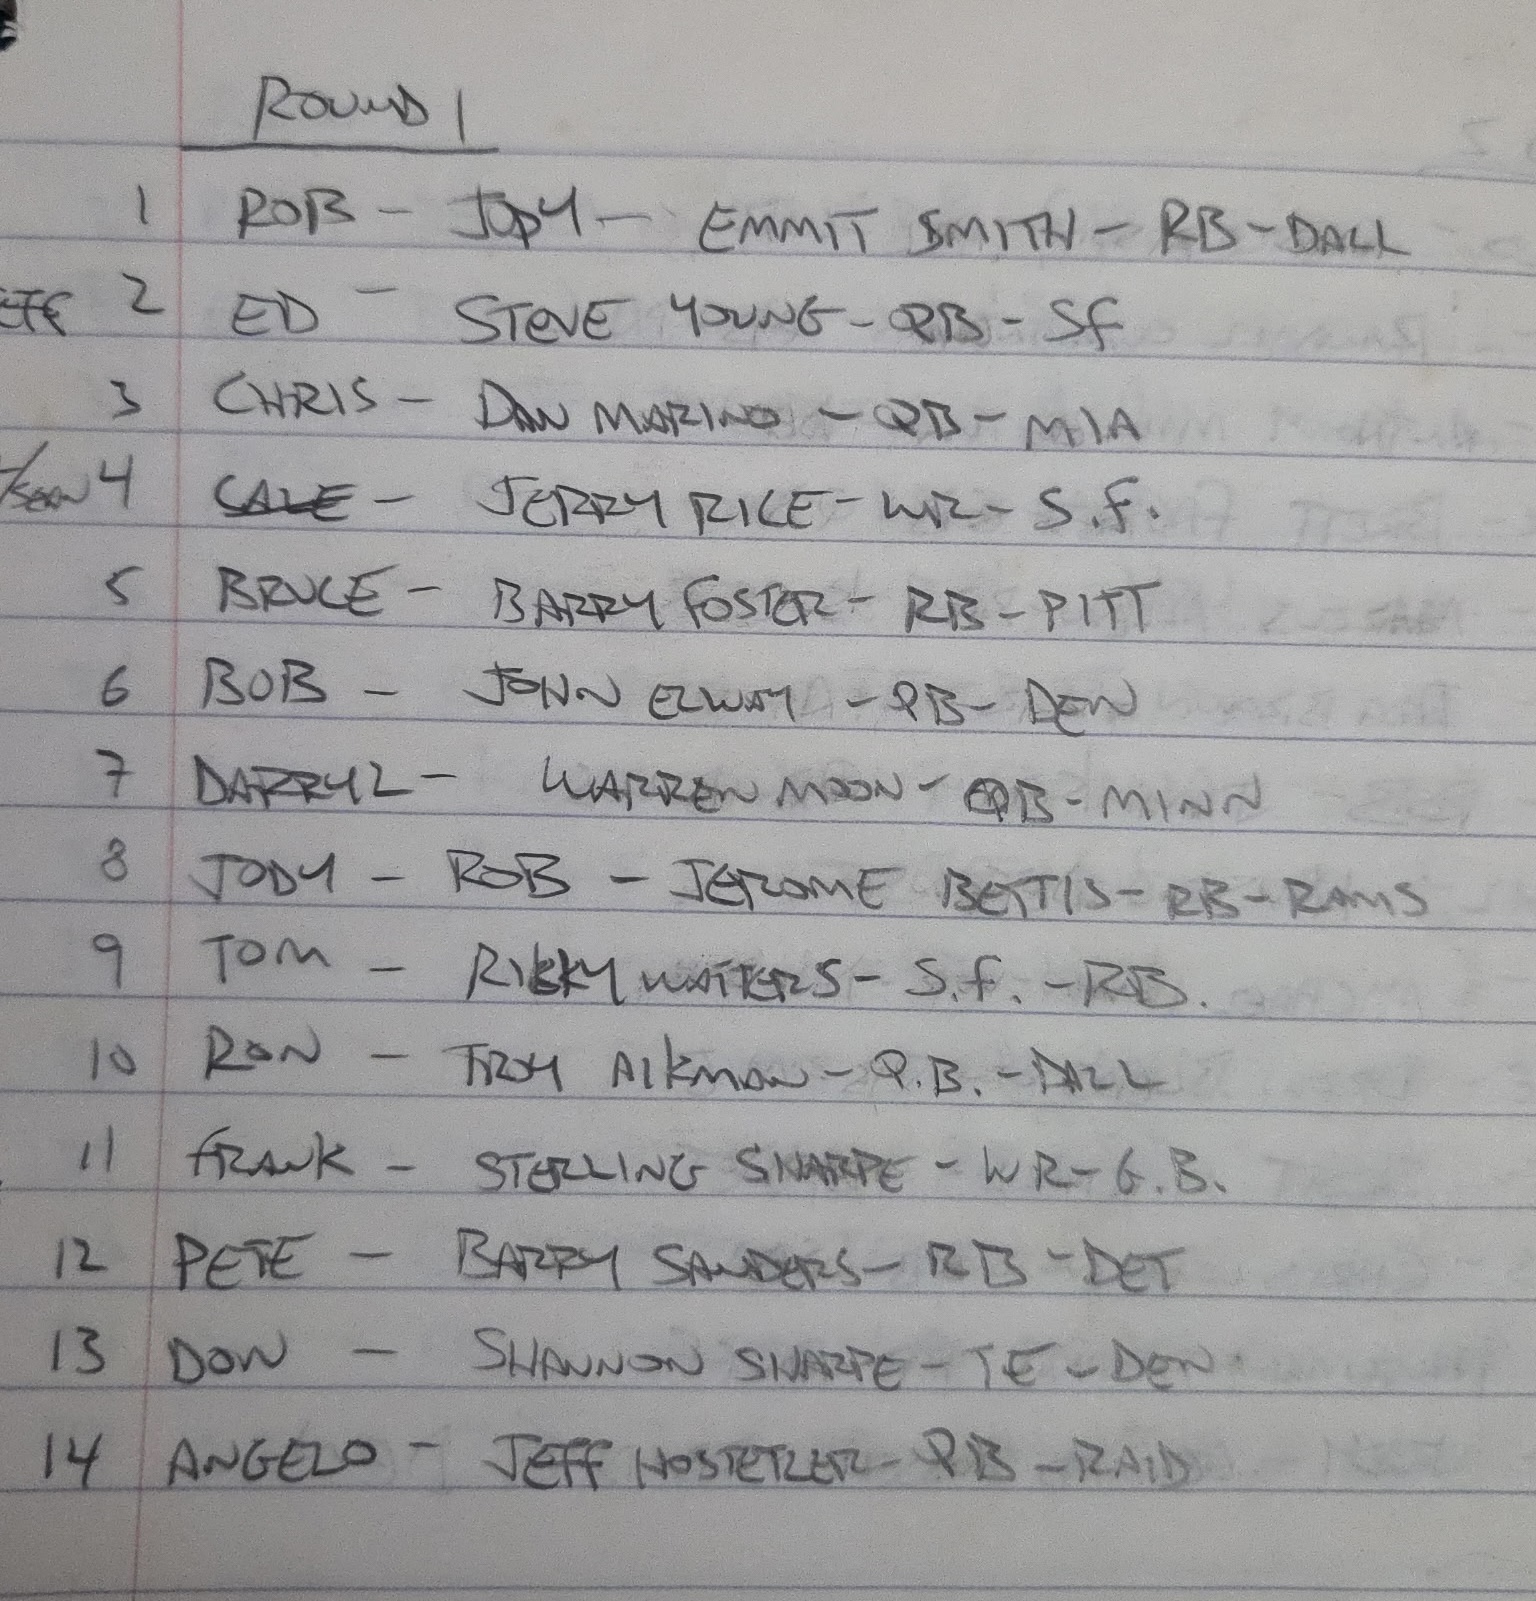 ROUND 1
1 ROB - JODY - EMMIT SMITH - RB - DALL
EFF 2 ED - STEVE YOUNG - QB - SF
3 CHRIS - DAN MARINO - QB - MIA
/SEAN 4 SALE - JERRY RICE - WR - S.F.
5 BRUCE - BARRY FOSTER - RB - PITT
6 BOB - JOHN ELWAY - QB - DEN
7 DARRYL - WARREN MOON - QB - MINN
8 JODY - ROB - JEROME BETTIS - RB - RAMS
9 TOM - RIKKY WATTERS - S.F. - RB.
10 RON - TROY AIKMAN - Q.B. - DALL
11 FRANK - STERLING SHARPE - WR - G.B.
12 PETE - BARRY SANDERS - RB - DET
13 DON - SHANNON SHARPE - TE - DEN
14 ANGELO - JEFF HOSTETLER - QB - RAID